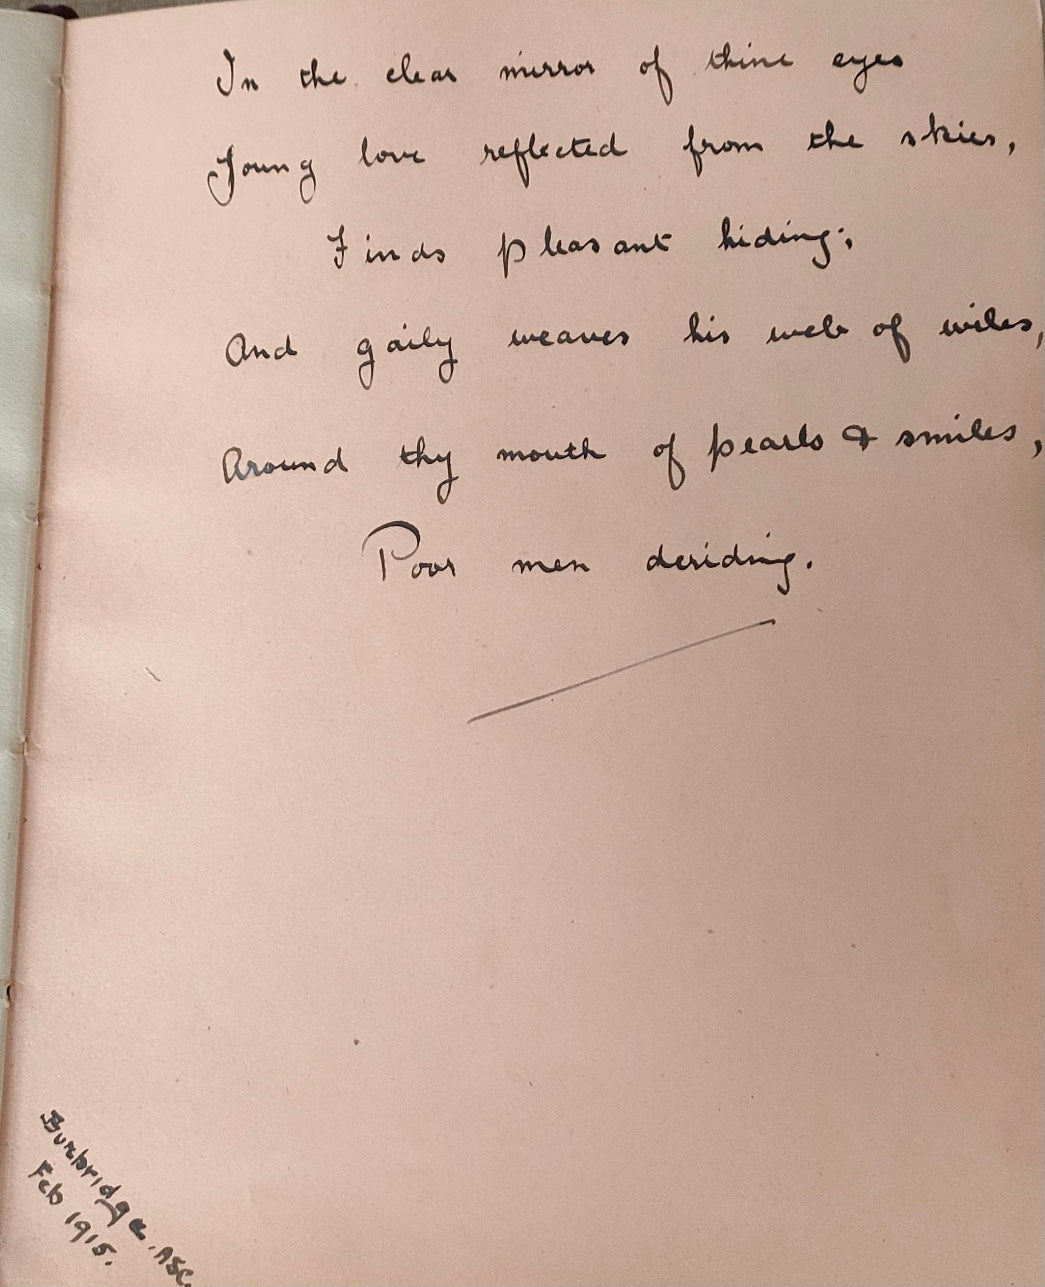 In the clear mirror of thine eyes
Young love reflected from the skies,
Finds pleasant hiding;
And gaily weaves his web of wiles,
Around thy mouth of pearls & smiles,
Poor men deriding.
Burbridge. ASC.
Feb 1915.